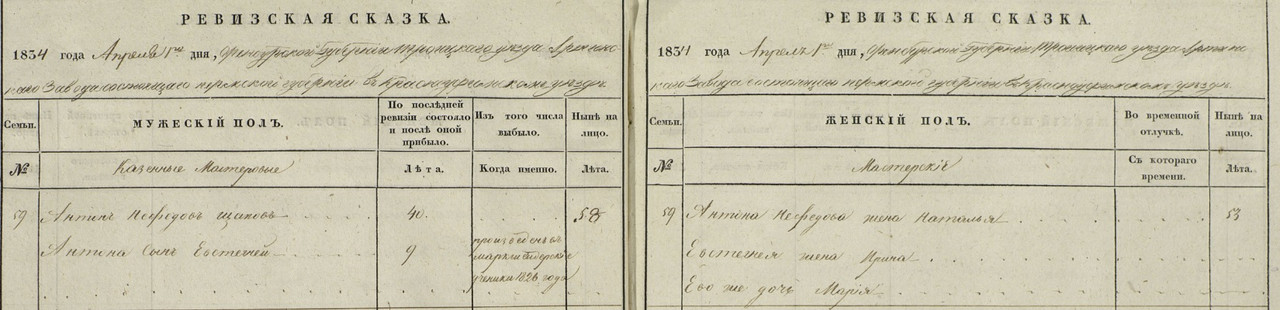 РЕВИЗСКАЯ СКАЗКА.
1834 года Апреля 1го дня, Оренбургской Губернiи Троицкаго уезда Артинс
каго Завода состоящаго пермской губернiи в Красноуфимском уезде
Семьи.
МУЖЕСКІЙ ПОЛЪ.
По послѣдней
ревизіи состояло
и послѣ оной
прибыло.
Изъ того числа
выбыло.
Нынѣ на
лицо.
№
Казенные Мастеровые
Лѣта.
Когда именно.
Лѣта.
59 Антипъ Нефедовъ 40. 58
Антипа Сынъ Евстегней 9
произведенъ в
ученики 1826 года
РЕВИЗСКАЯ СКАЗКА.
1834 года Апрель 1го дня, Оренбургской Губернiи Троицкаго уезда Артинс
каго Завода состоящаго пермской губернiи в Красноуфимском уезде
Семьи.
ЖЕНСКІЙ ПОЛЪ.
Во временной
отлучкѣ.
Нынѣ на
лицо.
№
Мастерскiе
Съ котораго
времени.
Лѣта.
59 Антипа Нефедова жена Наталья 53
Евстегнея жена Ирина
Ево же дочь Марiя